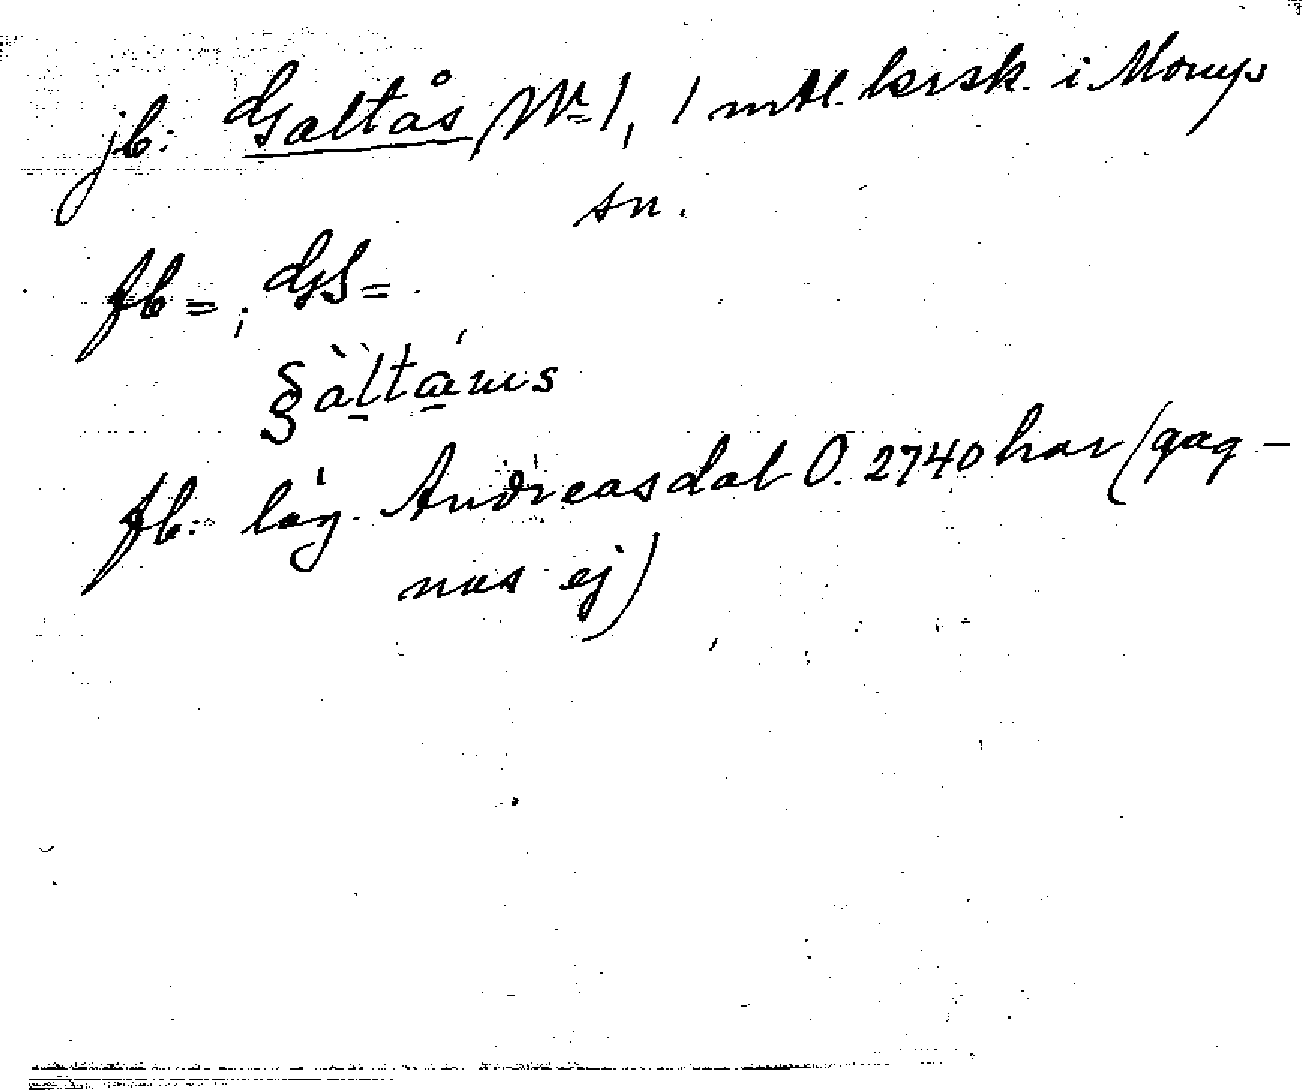 jb: Galtås Nr 1, 1 mtl. krsk. i Morups
sn.
fb = , GS =
fb: läg. Andreasdal 0.2740 har (gag-
nas ej)